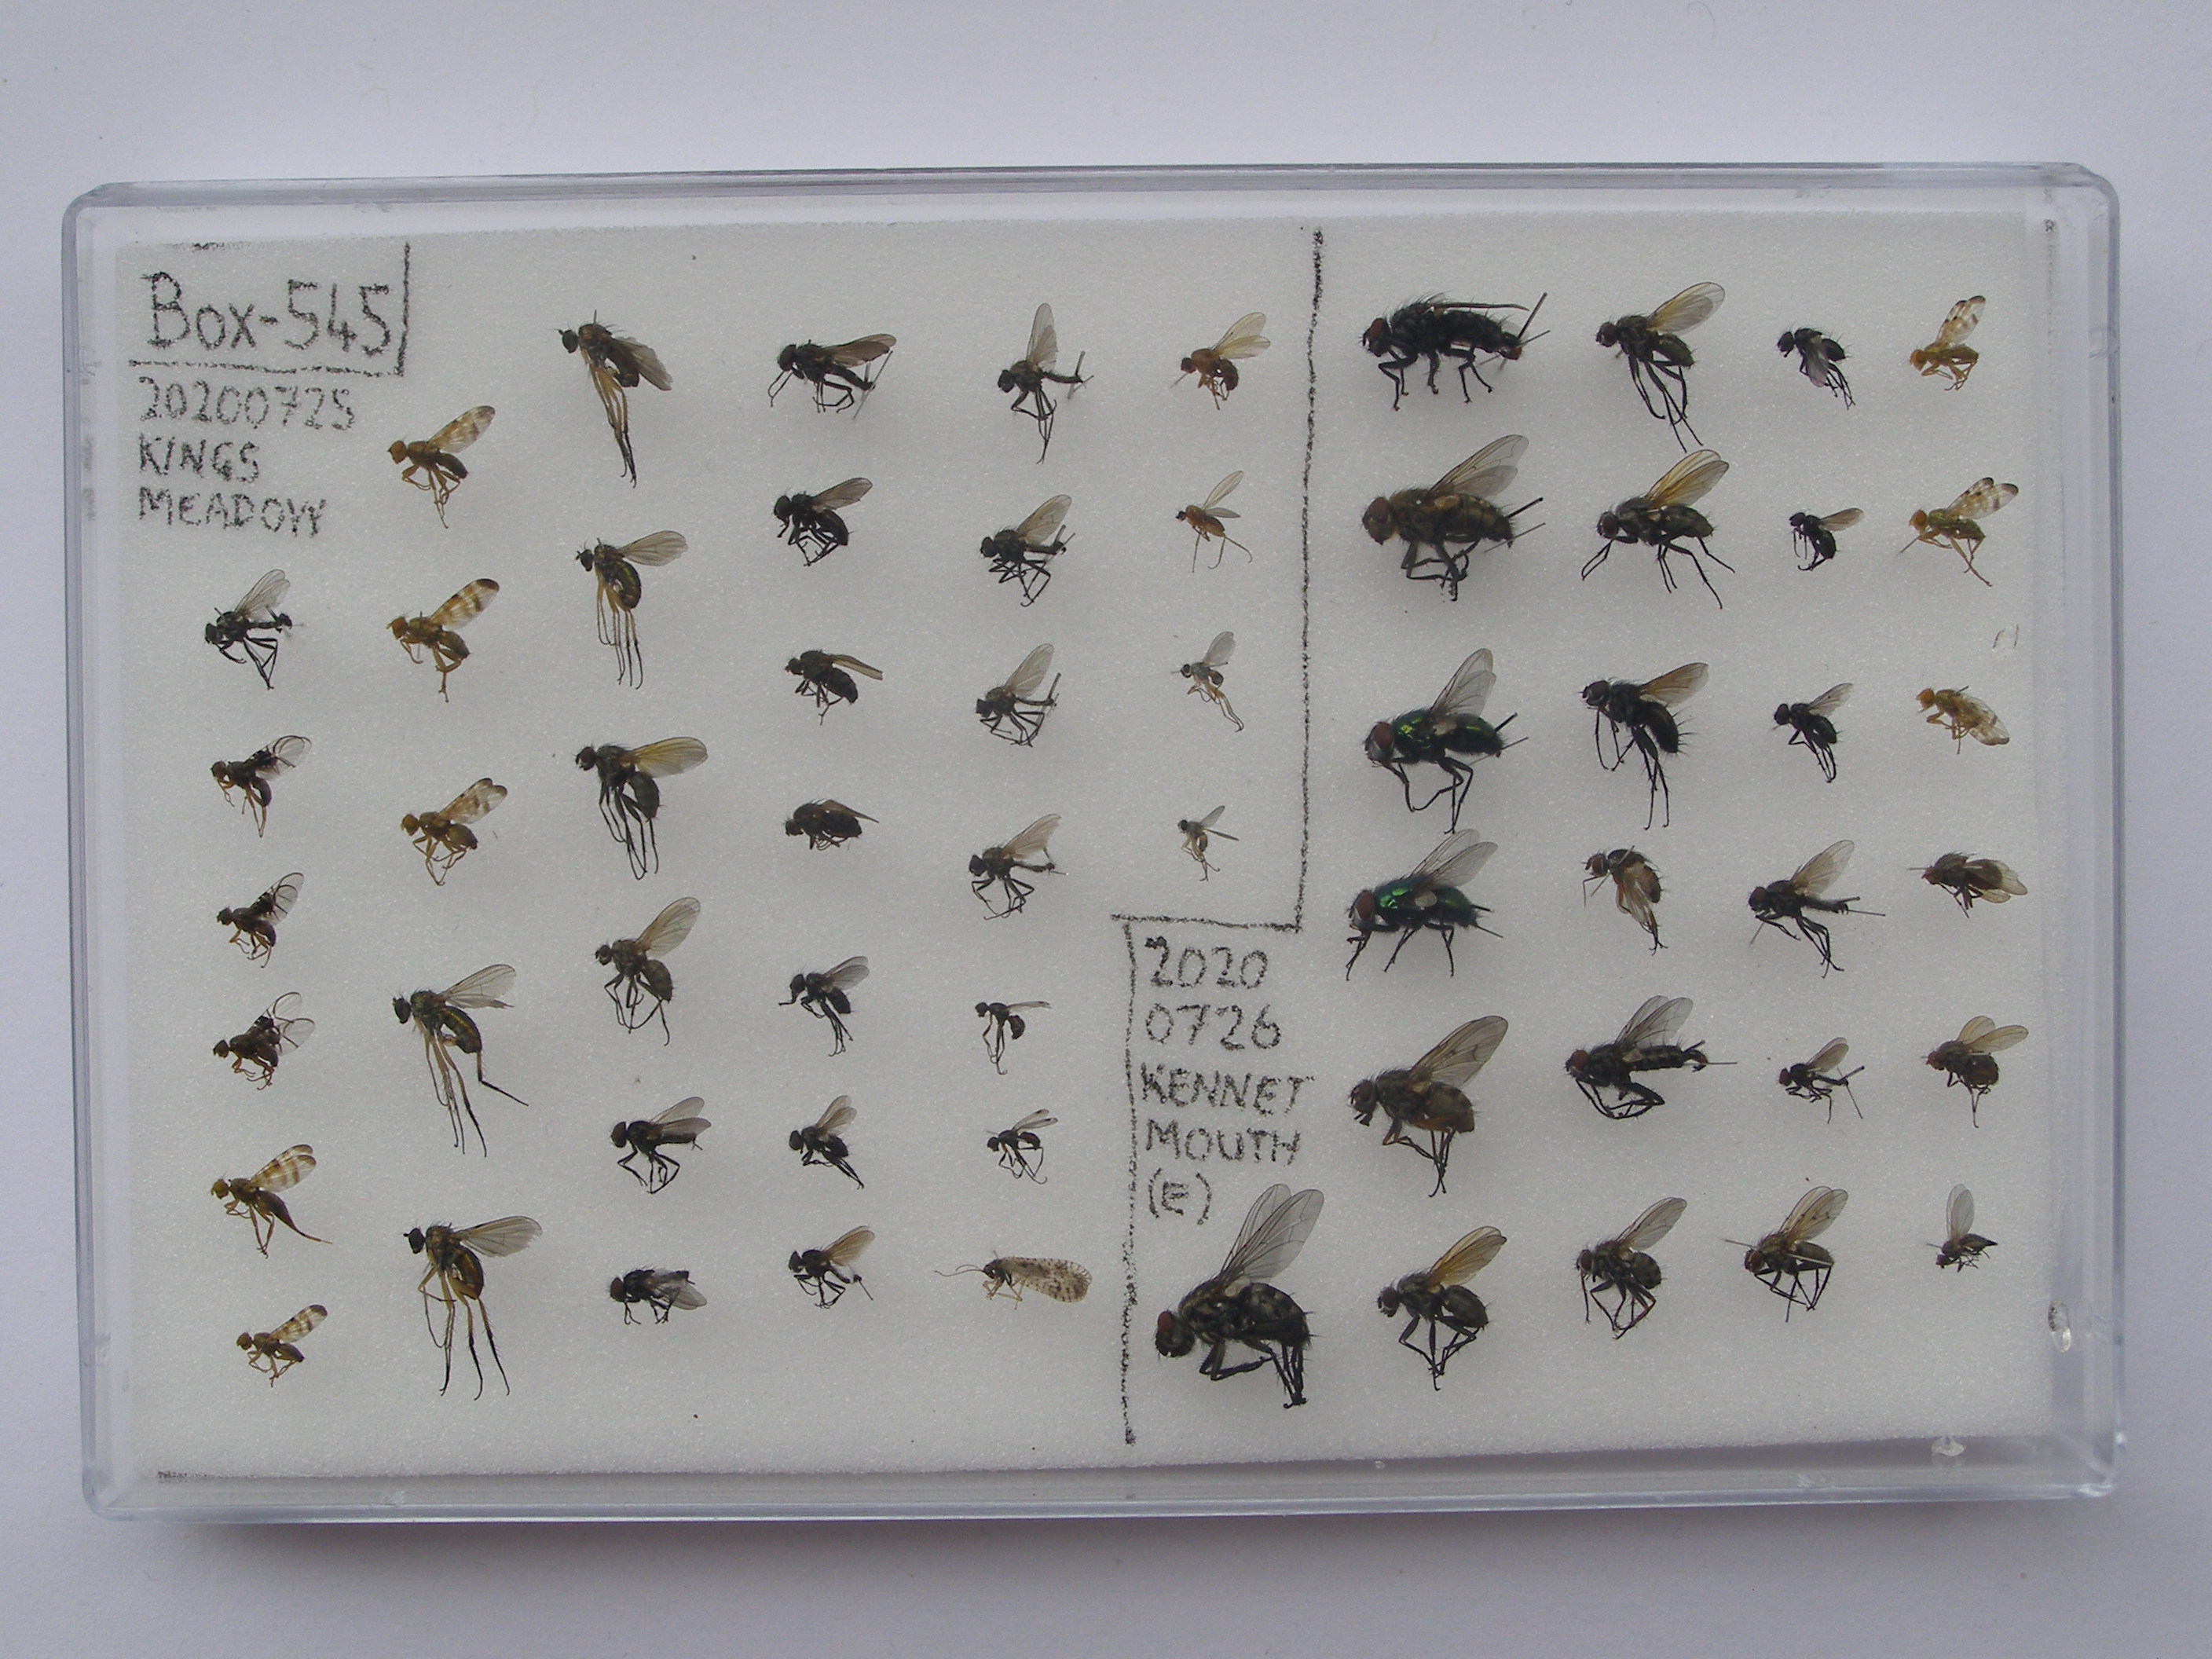 Box-545
20200725
KINGS
MEADOW
2020
0726
KENNET
MOUTH
(E)